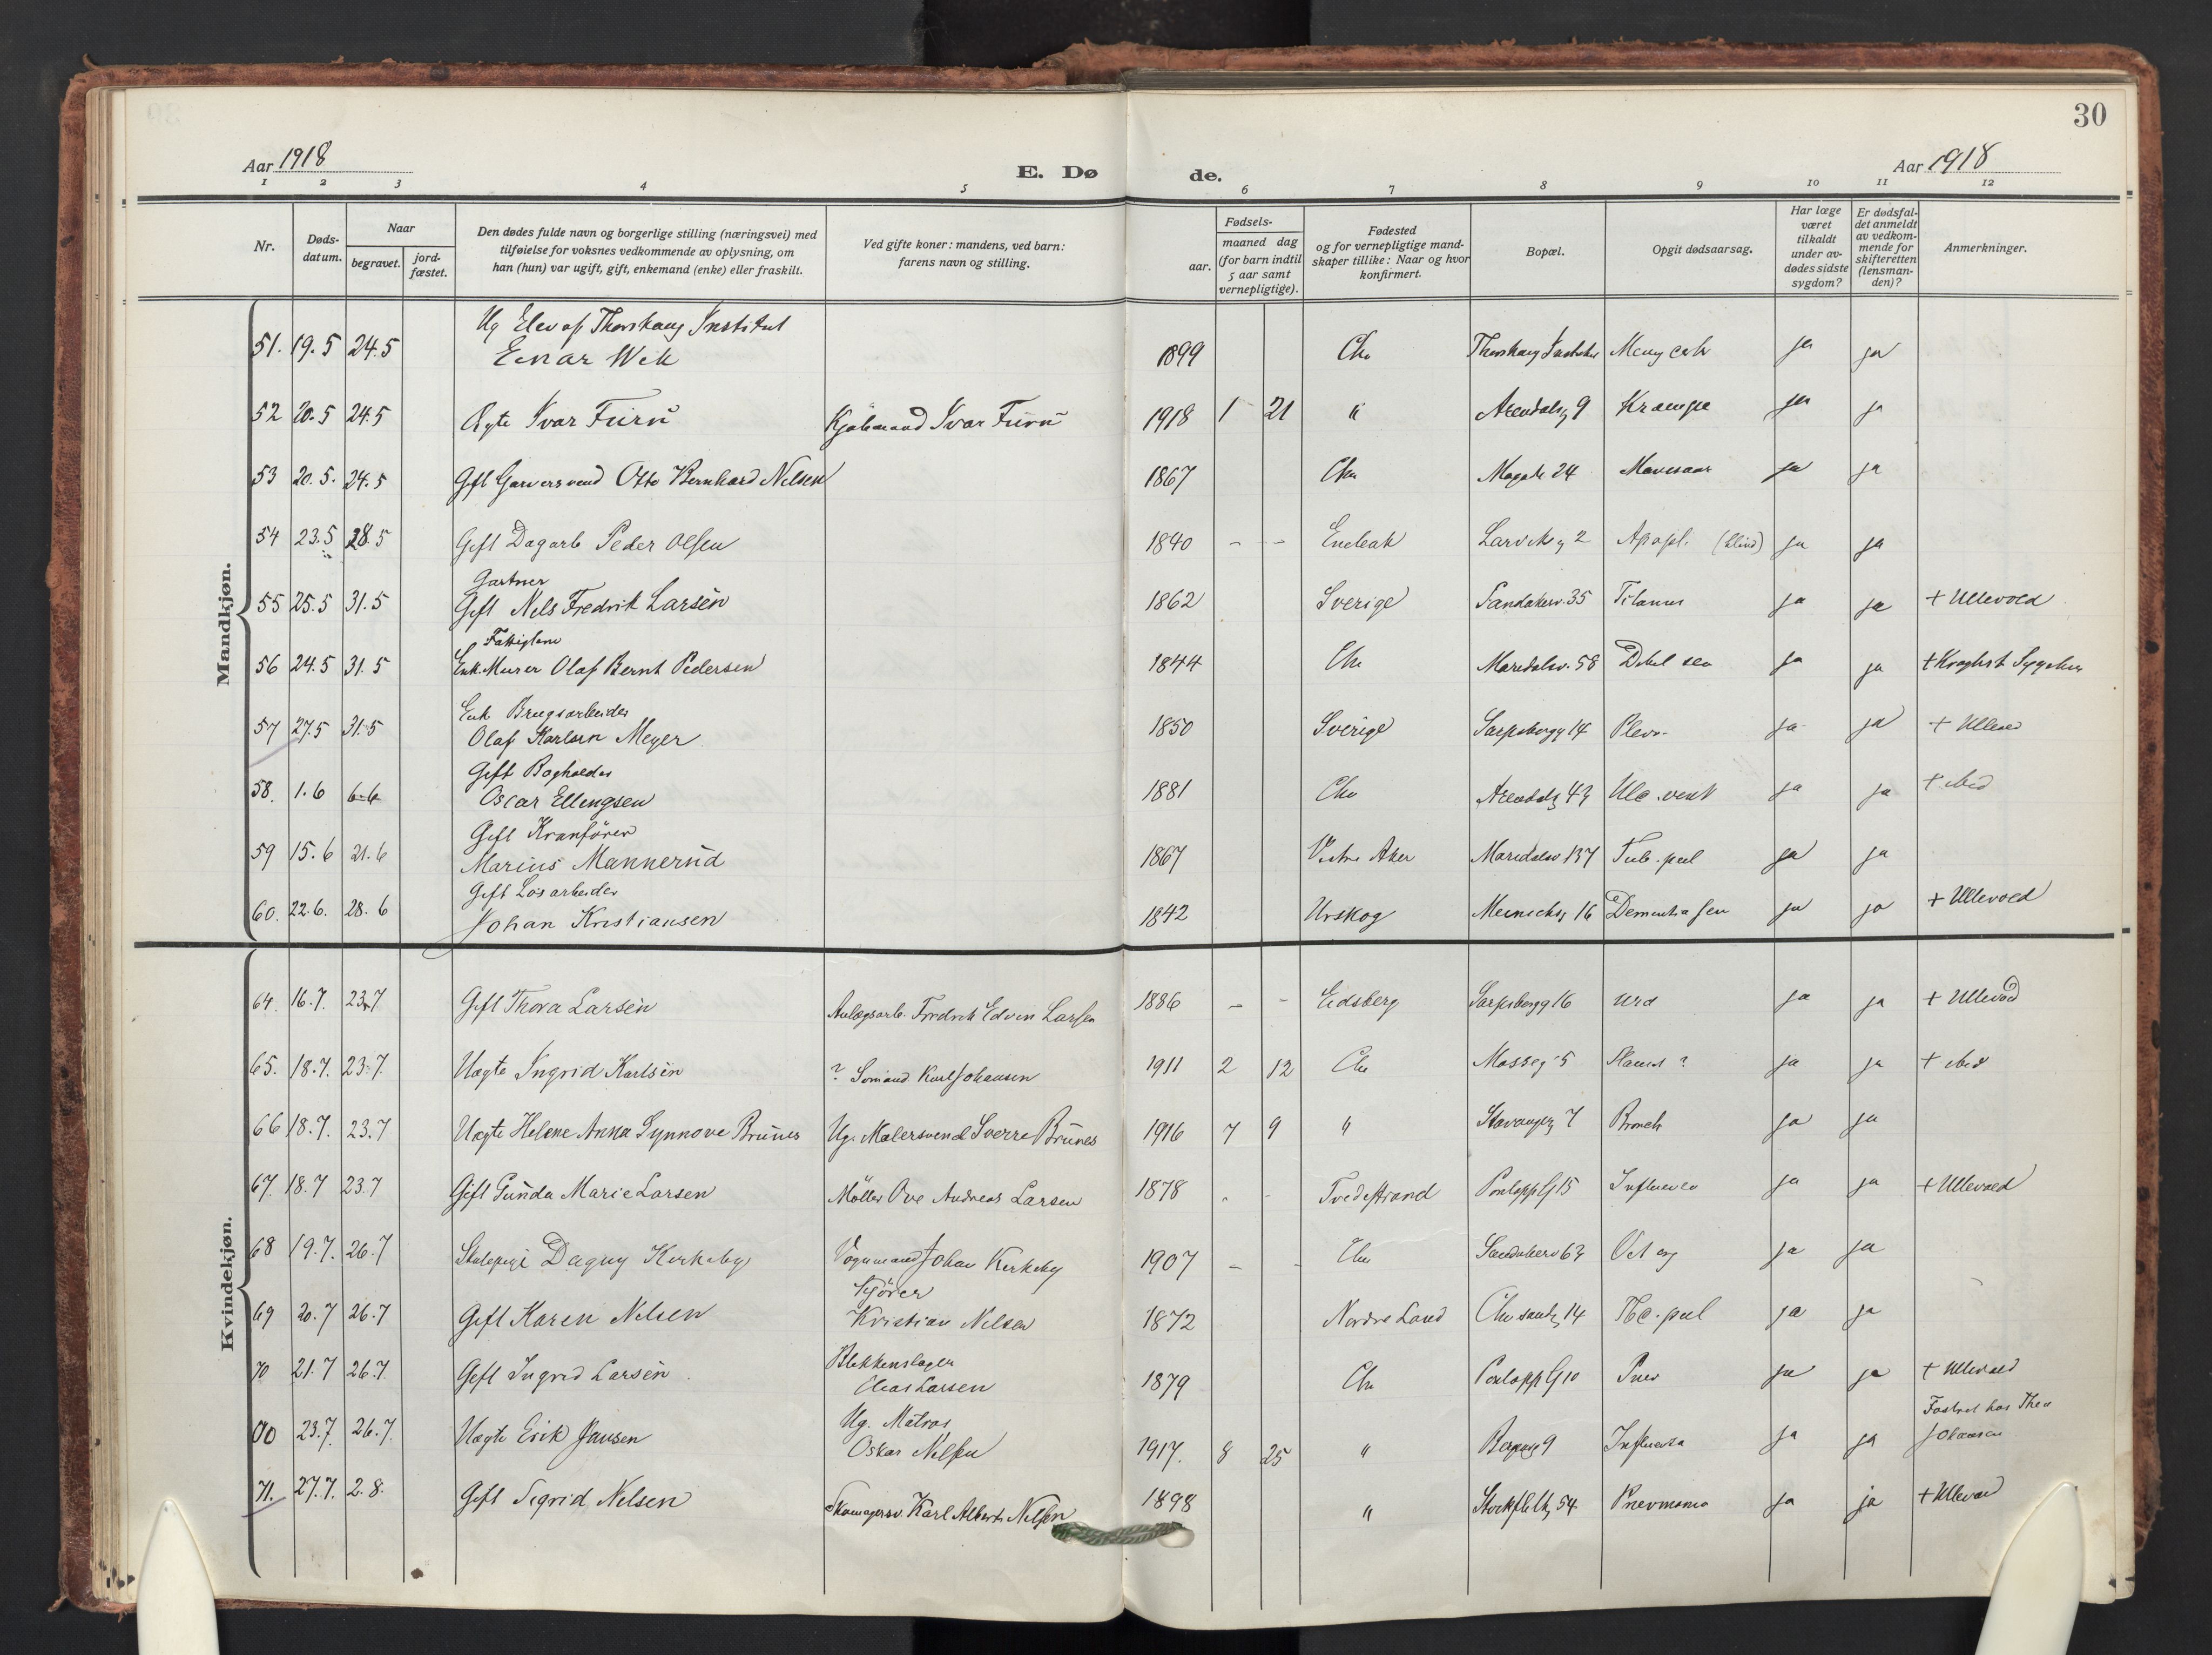 30
Aar 1918
E. Dø
de.
Aar 1918
1 2 3 4 5 6 7 8 9 10 11 12
Nr.
Døds-
datum.
Naar
begravet.
jord-
fæstet.
Den dødes fulde navn og borgerlige stilling (næringsvei) med
tilføielse for voksnes vedkommende av oplysning, om
han (hun) var ugift, gift, enkemand (enke) eller fraskilt.
Ved gifte koner: mandens, ved barn:
farens navn og stilling.
Fødsels-
aar.
maaned dag
(for barn indtil
5 aar samt
vernepligtige).
Fødested
og for vernepligtige mand-
skaper tillike: Naar og hvor
konfirmert.
Bopæl.
Opgit dødsaarsag.
Har læge
været
tilkaldt
under av-
dødes sidste
sygdom?
Er dødsfal-
det anmeldt
av vedkom-
mende for
skifteretten
(lensman-
den)?
Anmerkninger.
Mandkjøn.
Ug Elev af Thorshaug Institut
51. 19.5 24.5 Einar Wik 1899 Chr Thorshaug ja ja
52 20.5 24.5 Ægte Ivar Furu Ivar Furu 1918 1 21 " Arendalsg 9 Krampe ja ja
53 20.5. 24.5 Gift Garversvend Otto Bernhard Nelsen 1867 Chr 24 Mavesaar ja ja
54 23.5 28.5 Gift Dagarb Peder Olsen 1840 – – Enebak Larviksg 2 Apopl. (blind) ja ja
Gartner
55 25.5 31.5 Gift Nels Fredrik Larsen 1862 Sverige Sandakerv. 35 ja ja + Ullevold
Fattiglem
56 24.5 31.5 Enk. Murer Olaf Bernt Pedersen 1844 Chr Maridalsv. 58 Debil sen ja ja +
Enk Brugsarbeider
57 27.5 31.5 Olaf Karlsen Meyer 1850 Sverige Sarpsborgg 14 ja ja +
Gift Bogholder
58. 1.6 6.6 Oscar Ellingsen 1881 Chr Arendalsg 43 Ulc. vent ja ja + ibid
Gift Kranfører
59 15.6 21.6 Marius Mannerud 1867 Vestre Aker Maridalsv 137 Tub. pul ja ja
Gift Løsarbeider
60. 22.6. 28.6 Johan Kristiansen 1842 Urskog 16 Dementia sen ja ja + Ullevold
Kvindekjøn.
64. 16.7. 23.7 Gift Thora Larsen Anlægsarb. Fredrik Edvin Larsen 1886 – – Eidsberg Sarpsborgg 16 ja ja + Ullevold
65. 18.7. 23.7. Uægte Ingrid Karlsen ? Sømand Karl Johansen 1911 2 12 Chr Masseg 5 ja ja + ibid
66 18.7. 23.7 Uægte Helene Anna Synnøve Brunes Ug. Malersvend Sverre Brunes 1916 7 9 " Stavangerg 7 Bronch ja ja
67. 18.7 23.7 Gift Gunda Marie Larsen Møller Ove Andreas Larsen 1878 - - Tvedestrand 15 Influenza ja ja + Ullevold
68 19.7. 26.7 Skolepige Dagny Kirkeby Vognmand Johan Kirkeby 1907 – – Chr Sandakerv 63 ja ja
Kjører
69 20.7 26.7 Gift Karen Nelsen Kristian Nelsen 1872 Nordre Land Chr sandg 14 Tbc. pul ja ja
Blikkenslager
70 21.7 26.7. Gift Ingrid Larsen Larsen 1879 Chr 10 ja ja + Ullevold
Ug. Matros
00 23.7. 26.7. Uægte Erik Jansen Oskar Nelsen 1917. 8 25 " 9 Influenza ja ja Fostret hos Thea
Johansen
71. 27.7. 2.8. Gift Sigrid Nelsen Karl Albert Nelsen 1898 " 54 Pnevmonia ja ja +